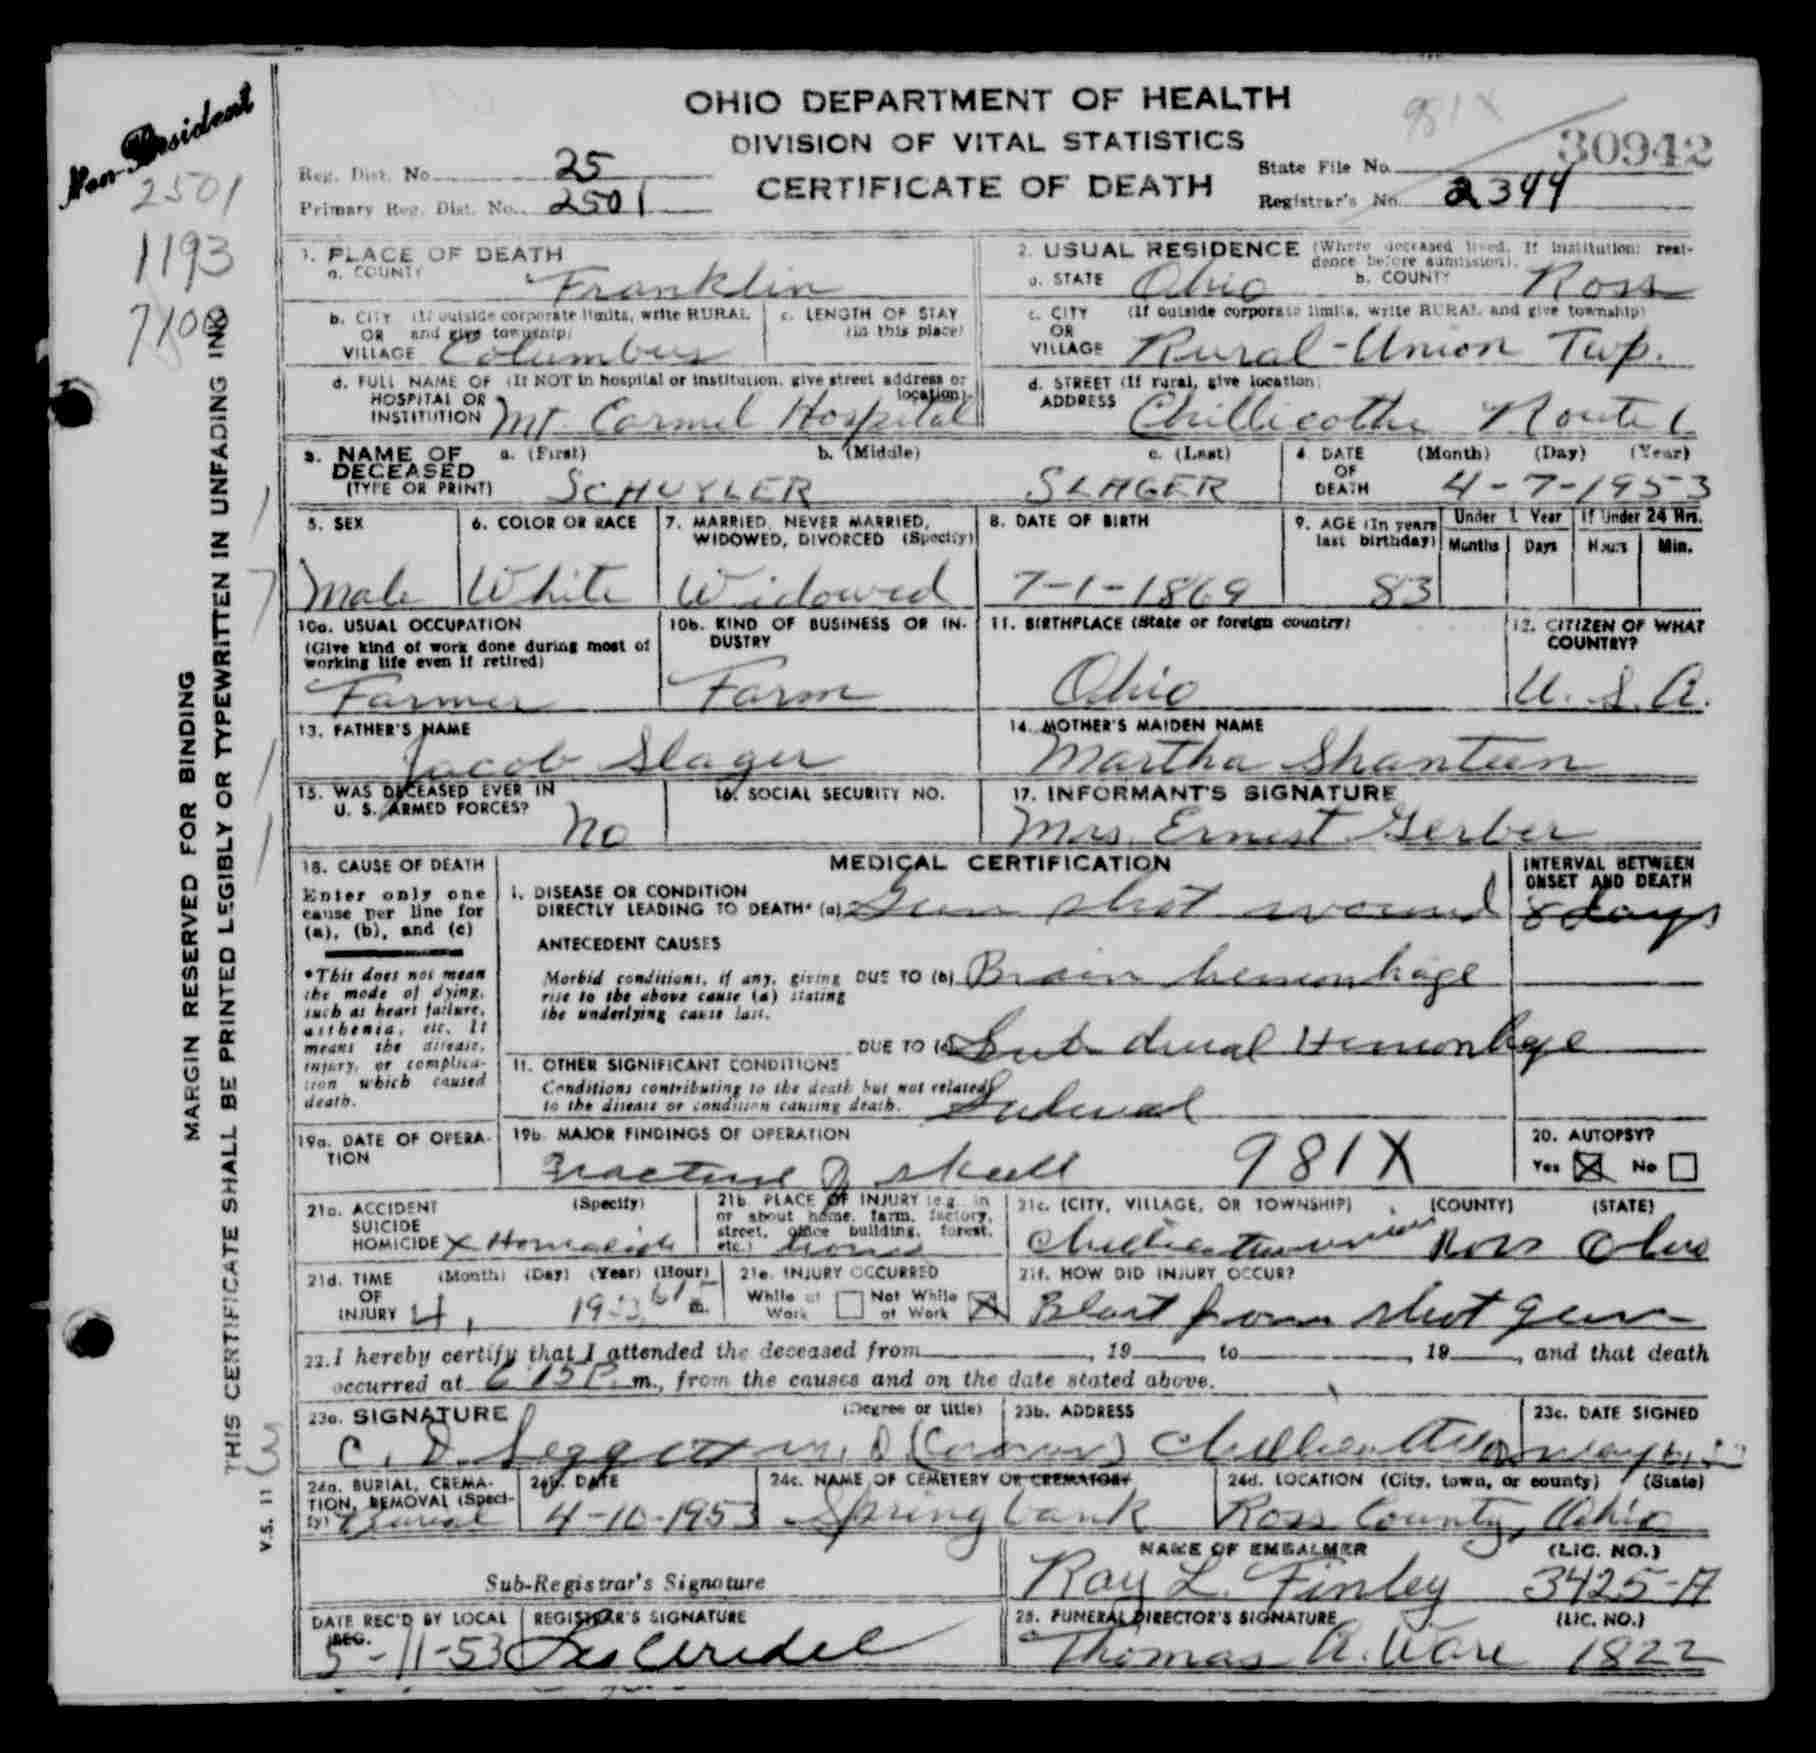 Non-Resident
2501
1193
7100
OHIO DEPARTMENT OF HEALTH
DIVISION OF VITAL STATISTICS
CERTIFICATE OF DEATH
981X
Reg. Dist. No. 25
Primary Reg. Dist. No. 2501
State File No. 30942
Registrar's No. 2344
1. PLACE OF DEATH
a. COUNTY Franklin
b. CITY (If outside corporate limits, write RURAL
OR and give township)
VILLAGE Columbus
c. LENGTH OF STAY
(in this place)
d. FULL NAME OF (If NOT in hospital or institution, give street address or
location)
HOSPITAL OR
INSTITUTION Mt. Carmel Hospital
2. USUAL RESIDENCE (Where deceased lived. If institution: resi-
dence before admission).
a. STATE Ohio b. COUNTY Ross
c. CITY (If outside corporate limits, write RURAL and give township)
OR
VILLAGE Rural-Union Twp.
d. STREET (If rural, give location)
ADDRESS Chillicothe Route 1
3. NAME OF
DECEASED
(TYPE OR PRINT)
a. (First) b. (Middle) c. (Last)
SCHUYLER SLAGER
4. DATE
OF
DEATH
(Month) (Day) (Year)
4-7-1953
5. SEX
Male
6. COLOR OR RACE
White
7. MARRIED, NEVER MARRIED,
WIDOWED, DIVORCED (Specify)
Widowed
8. DATE OF BIRTH
7-1-1869
9. AGE (In years
last birthday)
83
Under 1 Year If Under 24 Hrs.
Months Days Hours Min.
10a. USUAL OCCUPATION
(Give kind of work done during most of
working life even if retired)
Farmer
10b. KIND OF BUSINESS OR IN-
DUSTRY
Farm
11. BIRTHPLACE (State or foreign country)
Ohio
12. CITIZEN OF WHAT
COUNTRY?
U. S. A.
13. FATHER'S NAME
Jacob Slager
14. MOTHER'S MAIDEN NAME
Martha Shanteen
15. WAS DECEASED EVER IN
U. S. ARMED FORCES?
No
16. SOCIAL SECURITY NO.
17. INFORMANT'S SIGNATURE
Mrs. Ernest Gerber
18. CAUSE OF DEATH
Enter only one
cause per line for
(a), (b), and (c)
*This does not mean
the mode of dying,
such as heart failure,
asthenia, etc. It
means the disease,
injury, or complica-
tion which caused
death.
MEDICAL CERTIFICATION
INTERVAL BETWEEN
ONSET AND DEATH
I. DISEASE OR CONDITION
DIRECTLY LEADING TO DEATH* (a) Gun shot wound 8 days
ANTECEDENT CAUSES
Morbid conditions, if any, giving
rise to the above cause (a) stating
the underlying cause last.
DUE TO (b) Brain hemorrhage
DUE TO (c) Sub dural Hemorrhage
11. OTHER SIGNIFICANT CONDITIONS
Conditions contributing to the death but not related
to the disease or condition causing death.
19a. DATE OF OPERA-
TION
19b. MAJOR FINDINGS OF OPERATION
Fracture of skull 981X
20. AUTOPSY?
Yes X No
21a. ACCIDENT
SUICIDE
HOMICIDE
(Specify)
x Homicide
21b. PLACE OF INJURY (e.g. in
or about home, farm, factory,
street, office building, forest,
etc.) home
21c. (CITY, VILLAGE, OR TOWNSHIP) (COUNTY) (STATE)
Chillicothe Ross Ohio
21d. TIME
OF
INJURY
(Month) (Day) (Year) (Hour)
4, 1953 m.
21e. INJURY OCCURRED
While at
Work
Not While
at Work X
21f. HOW DID INJURY OCCUR?
Blast from shot gun
22. I hereby certify that I attended the deceased from , 19 , to , 19 , and that death
occurred at 6 15 P. m., from the causes and on the date stated above.
23a. SIGNATURE (Degree or title)
C. D. Leggett M. D (Coroner)
23b. ADDRESS
Chillicothe
23c. DATE SIGNED
24a. BURIAL, CREMA-
TION, REMOVAL (Speci-
fy) Burial
24b. DATE
4-10-1953
24c. NAME OF CEMETERY OR CREMATORY
Springbank
24d. LOCATION (City, town, or county) (State)
Ross County, Ohio
Sub-Registrar's Signature
NAME OF EMBALMER (LIC. NO.)
Ray L. Finley 3425-A
DATE REC'D BY LOCAL
REG.
5-11-53
REGISTRAR'S SIGNATURE
25. FUNERAL DIRECTOR'S SIGNATURE (LIC. NO.)
Thomas A. Ware 1822
MARGIN RESERVED FOR BINDING
THIS CERTIFICATE SHALL BE PRINTED LEGIBLY OR TYPEWRITTEN IN UNFADING INK
V.S. 11